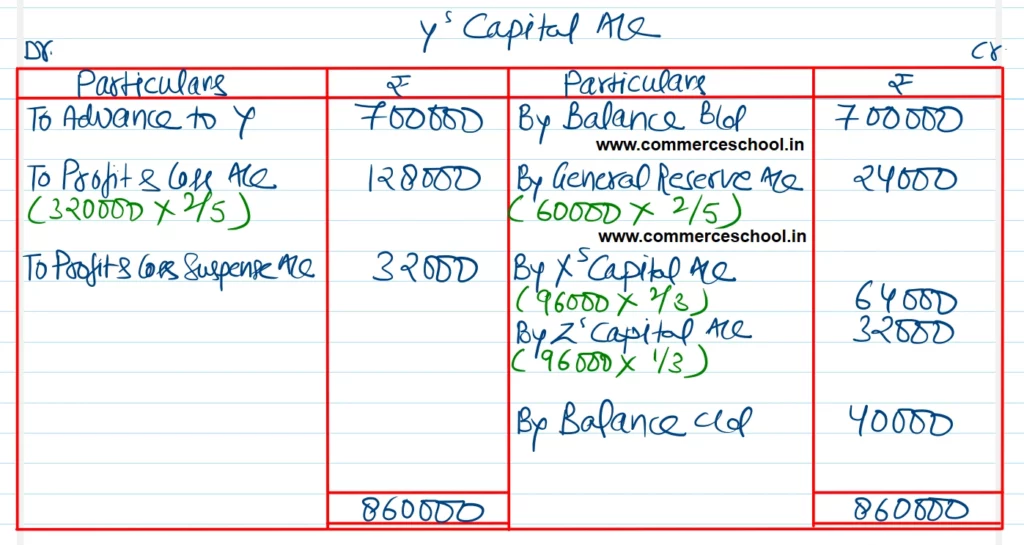 Y's Capital A/c
Dr. Cr.
Particulars ₹ Particulars ₹
To Advance to Y 700000 By Balance B/d 700000
www.commerceschool.in
To Profit & Loss A/c 128000 By General Reserve A/c 24000
(320000 X 2/5) (60000 X 2/5)
www.commerceschool.in
To Profit & Loss Suspense A/c 32000 By X's Capital A/c
(96000 X 2/3) 64000
By Z's Capital A/c 32000
(96000 X 1/3)
By Balance c/d 40000
860000 860000